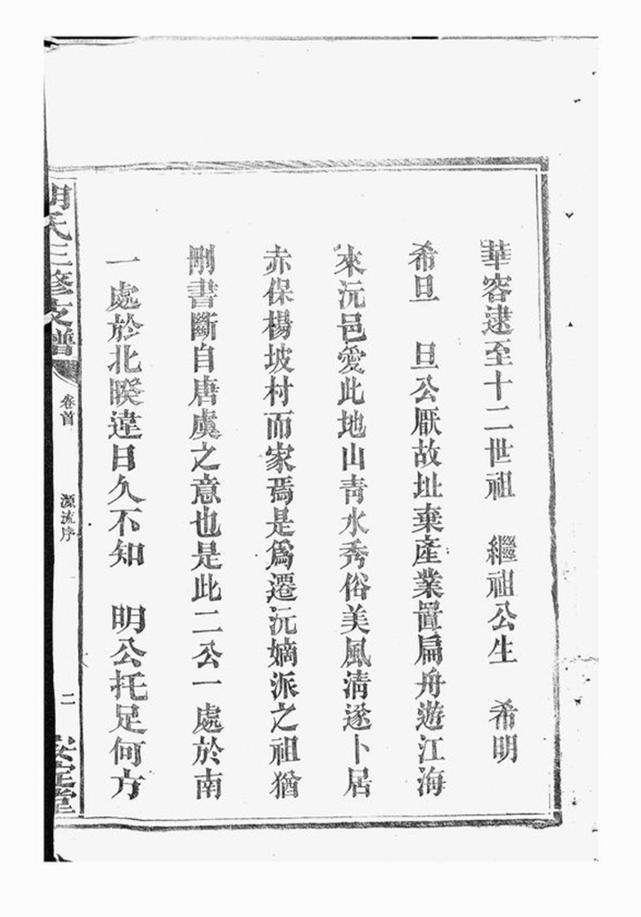 華容逮至十二世祖　繼祖公生　希明
希旦　旦公厭故址棄產業置扁舟遊江海
來沅邑愛此地山青水秀俗美風清遂卜居
赤保楊坡村而家焉是爲遷沅嫡派之祖猶
刪書斷自唐虞之意也是此二公一處於南
一處於北睽違日久不知　明公托足何方
胡氏三修支譜
卷首
源流序
二
安定堂